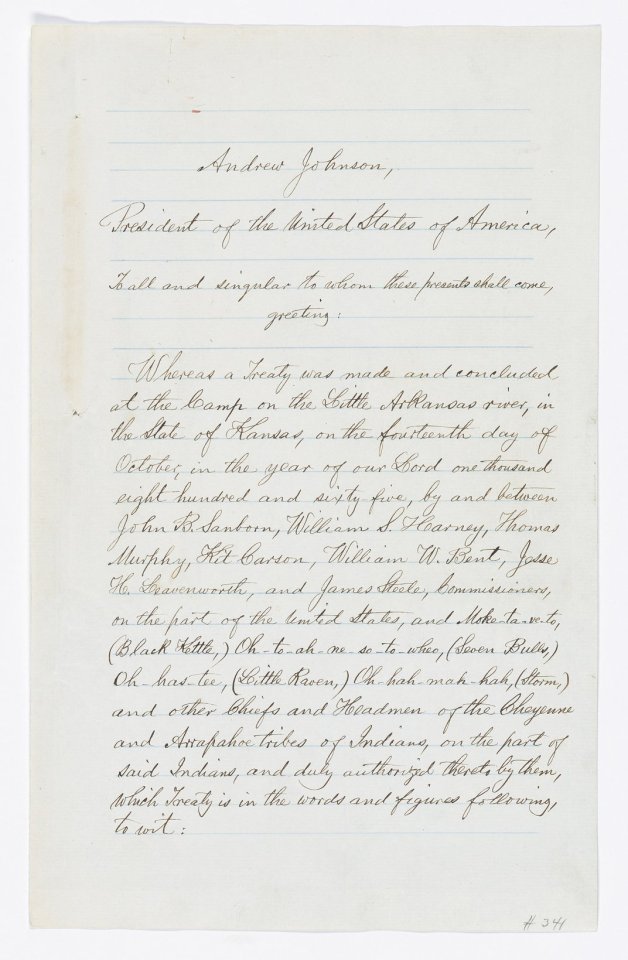 Andrew Johnson,
President of the United States of America,
To all and singular to whom these presents shall come,
greeting:
Whereas a Treaty was made and concluded
at the Camp on the Little Arkansas river, in
the State of Kansas, on the fourteenth day of
October, in the year of our Lord one thousand
eight hundred and sixty five, by and between
John B. Sanborn, William S. Harney, Thomas
Murphy, Kit Carson, William W. Bent, Jesse
H. Leavenworth, and James Steele, Commissioners,
on the part of the United States, and Moke-ta-ve-to,
(Black Kettle,) Oh-to-ah-ne-so-to-wheo, (Seven Bulls,)
Oh-has-tee, (Little Raven,) Oh-hah-mah-hah, (Storm,)
and other Chiefs and Headmen of the Cheyenne
and Arrapahoe tribes of Indians, on the part of
said Indians, and duly authorized thereto by them,
which Treaty is in the words and figures following,
to wit:
# 341